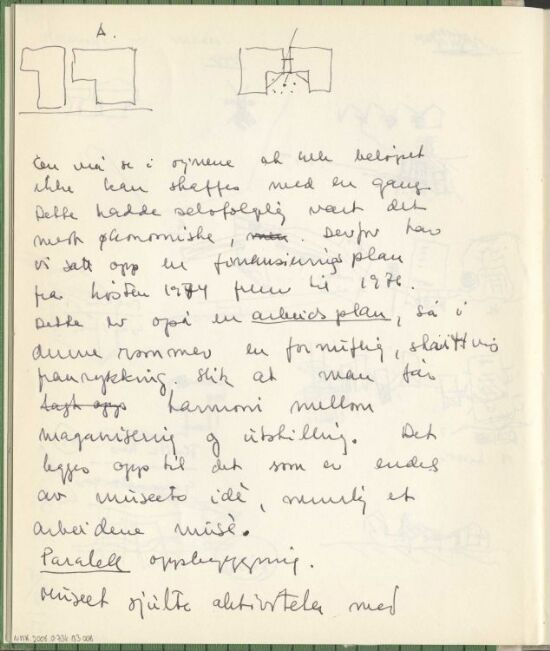 A.
En må se i øynene at hele beløpet
ikke kan skaffes med en gang.
Dette hadde selvfølgelig vært det
mest økonomiske, men. Derfor har
vi satt opp en finansieringsplan
fra høsten 1974 frem til 1976.
Dette er også en arbeidsplan, så i
denne rommer en fornuftig, skrittvis
framrykking. Slik at man får
lagt opp harmoni mellom
magasinering og utstilling. Det
legges opp til det som er endel
av museets idè, nemlig et
arbeidene musè.
Paralell oppbygging.
museet aktiviteter med
NMK.2005.0734.113.008